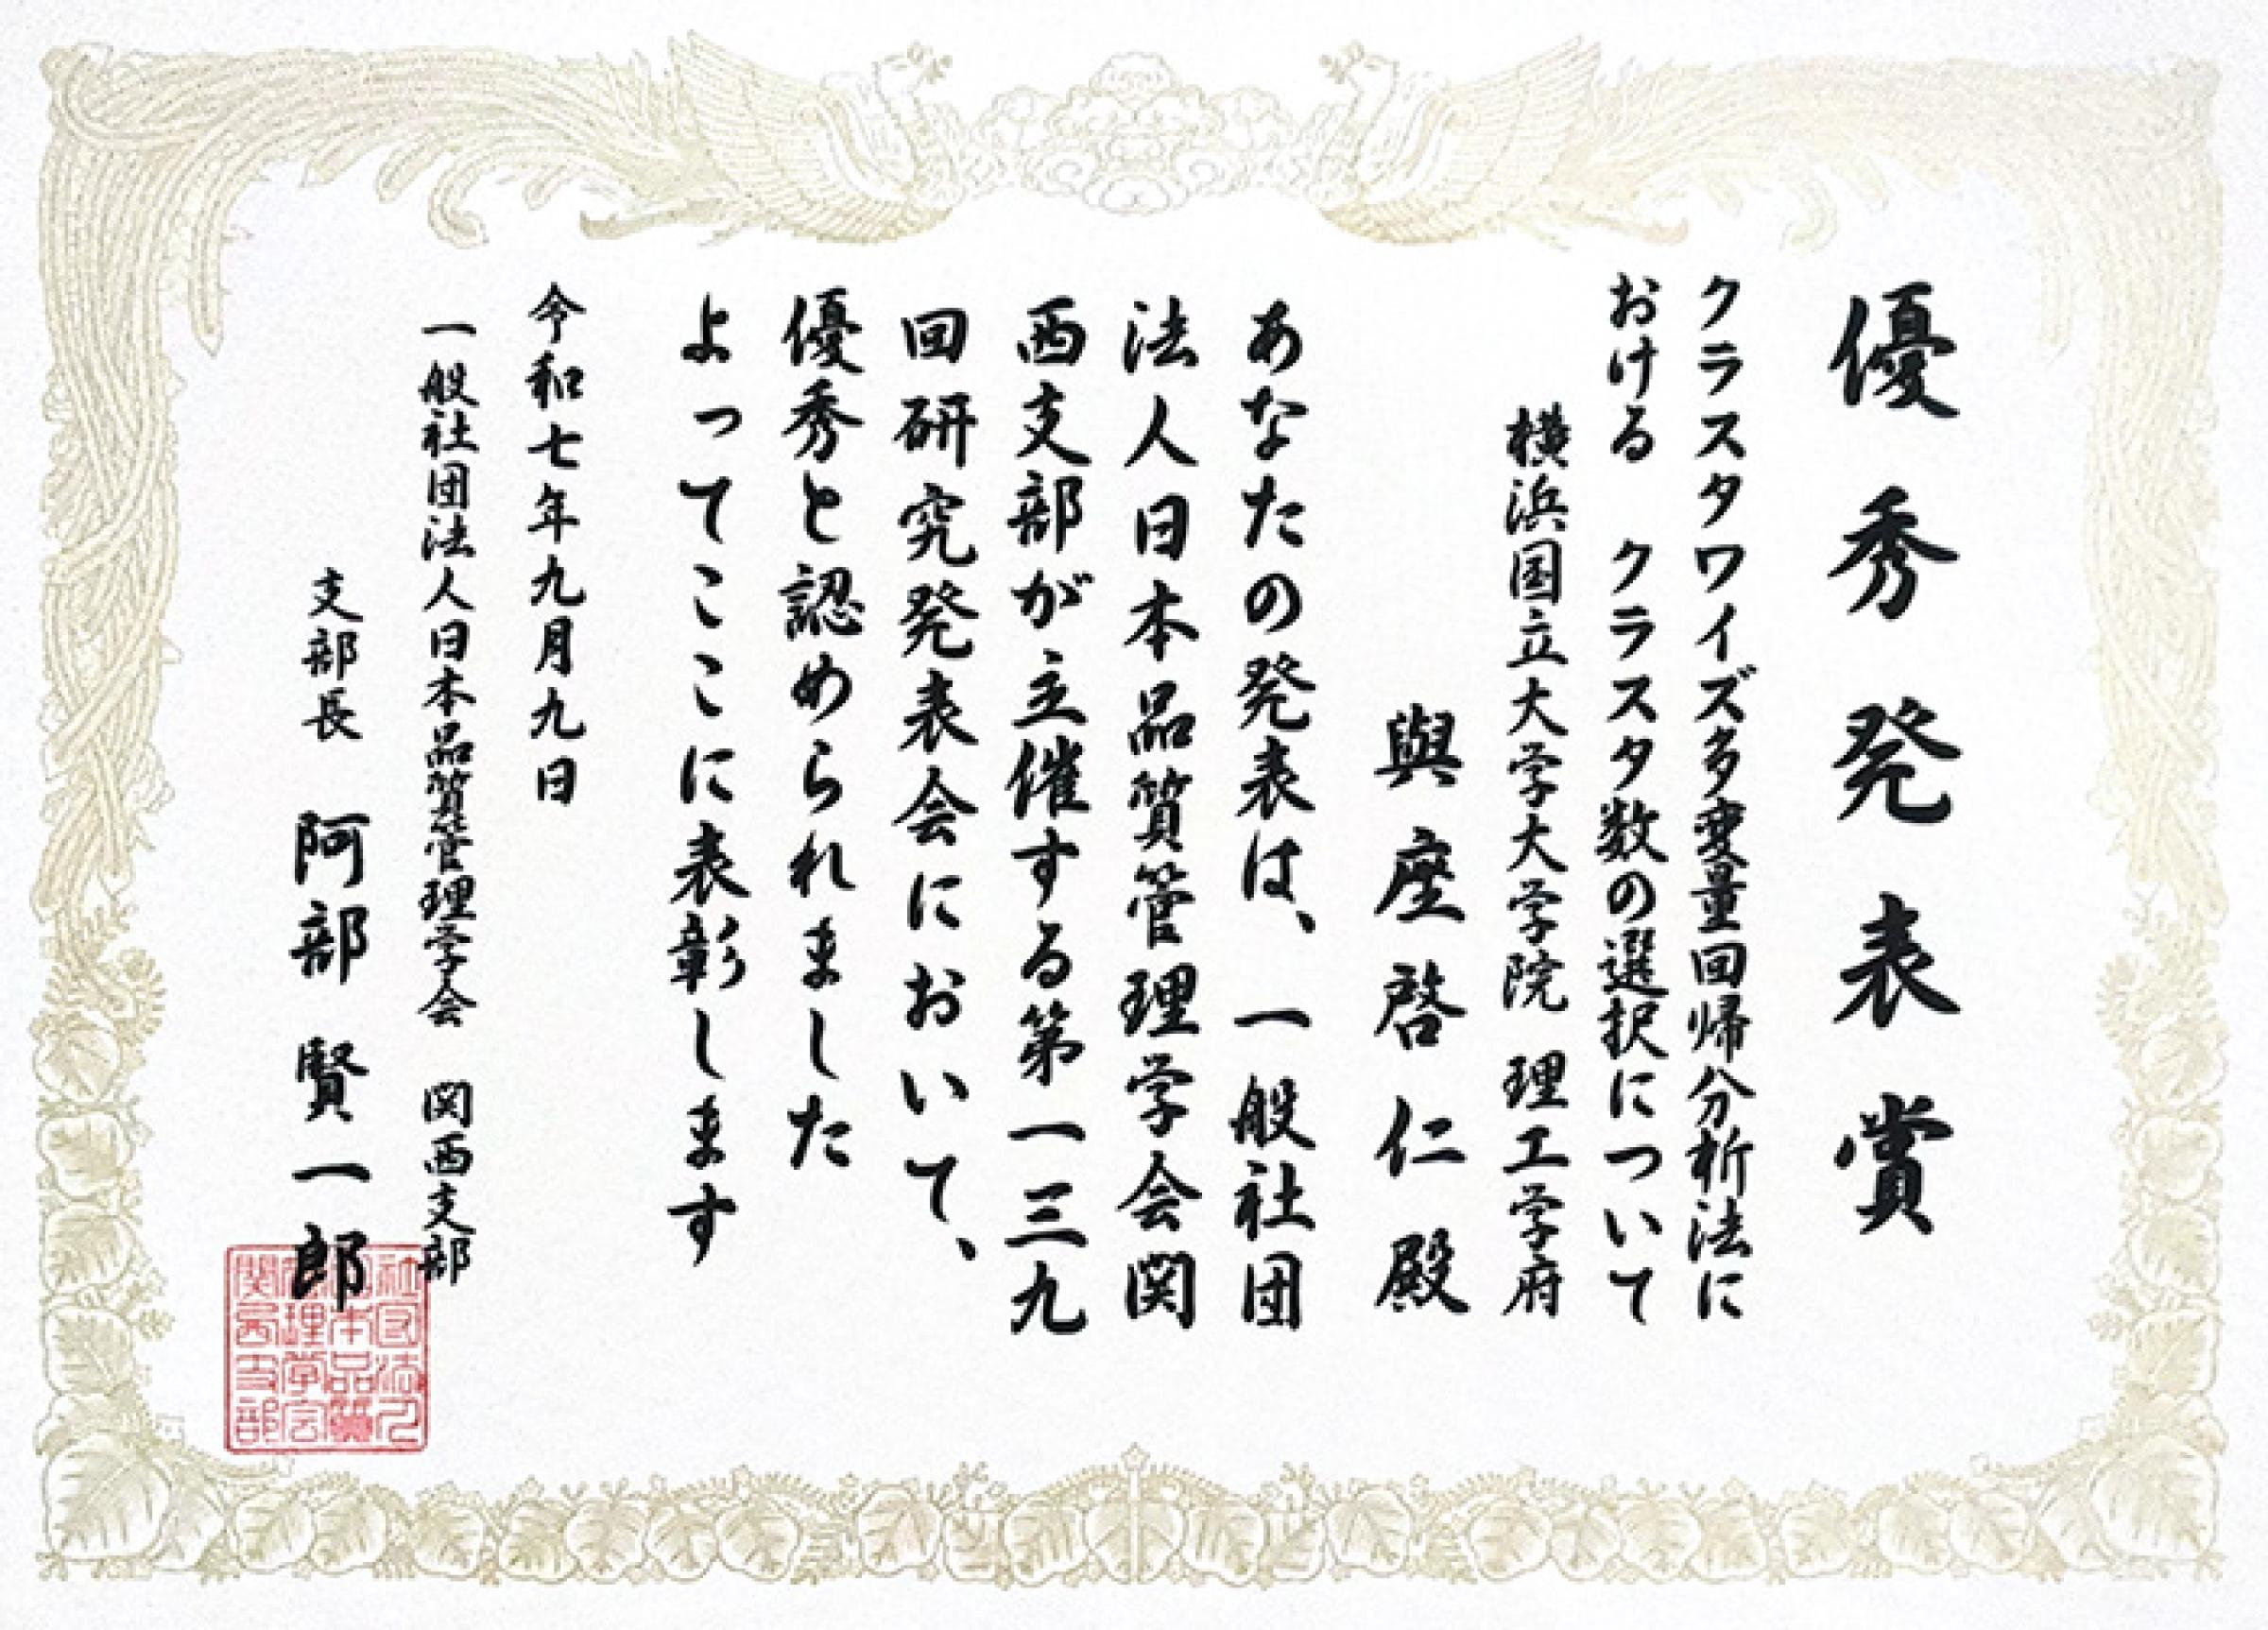 優秀発表賞
クラスタワイズ多変量回帰分析法に
おける クラスタ数の選択について
横浜国立大学大学院 理工学府
與座啓仁殿
あなたの発表は、一般社団
法人日本品質管理学会関
西支部が主催する第一三九
回研究発表会において、
優秀と認められました
よってここに表彰します
令和七年九月九日
一般社団法人日本品質管理学会 関西支部
支部長 阿部 賢一郎